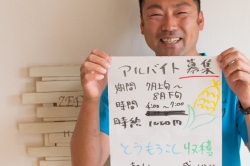 アルバイト募集
期間 7月上旬〜
8月下旬
時間 6:00〜9:00
時給 1000円
とうもろこし収穫